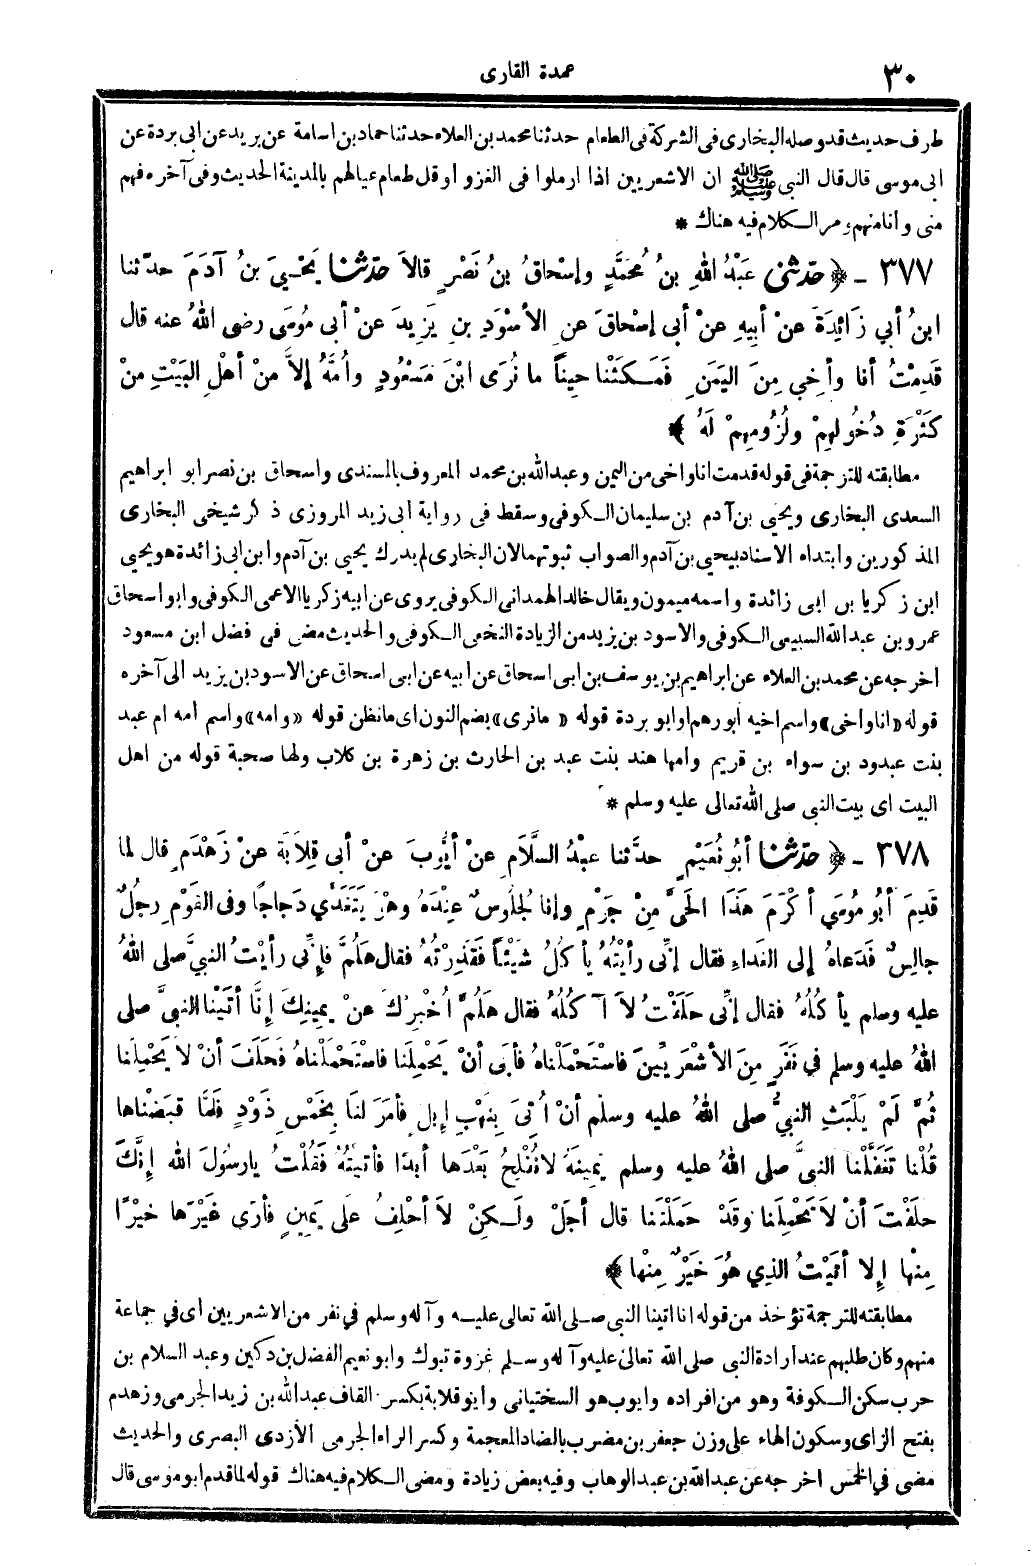 ٣٠
عمدة القارى
طرف حديث قد وصله البخارى فى الشركة فى الطعام حدثنا محمد بن العلاء حدثنا حماد بن اسامة عن بريد عن ابى بردة عن
ابى موسى قال قال النبى ﷺ ان الاشعريين اذا ارملوا فى الغزو او قل طعام عيالهم بالمدينة الحديث وفى آخره فهم
منى وانا منهم ومر الكلام فيه هناك *
٣٧٧ - ﴿ حدَّثنى عَبْدُ اللهِ بنُ مُحَمَّدٍ وإسْحاقُ بنُ نَصْرٍ قالاَ حدَّثنا يَحْيىَ بنُ آدَمَ حدّثنا
ابنُ أبي زَائِدَةَ عنْ أبِيهِ عنْ أبى إسْحاقَ عنِ الأسْوَدِ بنِ يَزِيدَ عنْ أبى مُوسَى رضى اللهُ عنه قال
قَدِمْتُ أنا وأخِي مِنَ اليَمَنِ فَمَكَثْنا حِيناً ما نُرَى ابْنَ مَسْعُودٍ وأُمَّهُ إلاَّ منْ أهْلِ البَيْتِ مِنْ
كَثْرَةِ دُخُولِهِمْ ولُزُومِهِمْ لَهُ ﴾
مطابقته للترجمة فى قوله قدمت انا واخى من اليمن وعبدالله بن محمد المعروف بالمسندى واسحاق بن نصر ابو ابراهيم
السعدى البخارى ويحيى بن آدم بن سليمان الكوفى وسقط فى رواية ابى زيد المروزى ذكر شيخى البخارى
المذكورين وابتداء الاسناد بيحيى بن آدم والصواب ثبوتهما لان البخارى لم يدرك يحيى بن آدم وابن ابى زائدة هو يحيى
ابن زكريا بن ابى زائدة واسمه ميمون ويقال خالد الهمدانى الكوفى يروى عن ابيه زكريا الاعمى الكوفى وابو اسحاق
عمرو بن عبدالله السبيعى الكوفى والاسود بن يزيد من الزيادة النخعى الكوفى والحديث مضى فى فضل ابن مسعود
اخرجه عن محمد بن العلاء عن ابراهيم بن يوسف بن ابى اسحاق عن ابيه عن ابى اسحاق عن الاسود بن يزيد الى آخره
قوله «انا واخى» واسم اخيه ابو رهم او ابو بردة قوله «ما نرى» بضم النون اى ما نظن قوله «وامه» واسم امه ام عبد
بنت عبدود بن سواء بن قريم وامها هند بنت عبد بن الحارث بن زهرة بن كلاب ولها صحبة قوله من اهل
البيت اى بيت النبى صلى الله تعالى عليه وسلم *
٣٧٨ - ﴿ حدّثنا أبُو نُعَيْمٍ حدَّثنا عبْدُ السَّلاَمِ عنْ أيُّوبَ عنْ أبى قِلاَبَةَ عنْ زَهْدَمٍ قال لما
قَدِمَ أبُو مُوسَي أكْرَمَ هَذَا الحَىَّ مِنْ جَرْمٍ وإنا لجُلُوسٌ عِنْدَهُ وهْوَ يَتَغَدَّي دَجاجاً وفى القَوْمِ رجُلٌ
جالِسٌ فَدَعاهُ إلى الغَداءِ فقال إنِّى رأيْتُهُ يأكُلُ شَيْئاً فَقَذِرْتُهُ فقال هَلُمَّ فإنِّى رأيْتُ النبيَّ صلى اللهُ
عليه وسلم يأكُلُهُ فقال إنِّى حَلَفْتُ لاَ آكُلُهُ فقال هَلُمَّ أُخْبِرْكَ عنْ يمِينِكَ إنَّا أتَيْنا النبيَّ صلى
اللهُ عليه وسلم في نَفَرٍ مِنَ الأشْعَرِيِّينَ فاسْتَحْمَلْناهُ فأبَى أنْ يَحْمِلَنا فاسْتَحْمَلْناهُ فَحَلَفَ أنْ لاَ يَحْمِلَنا
ثُمَّ لَمْ يَلْبَثِ النبيُّ صلى اللهُ عليه وسلّم أنْ أُتِىَ بِنَهْبِ إبِلٍ فأمَرَ لَنا بِخَمْسِ ذَوْدٍ فَلمَّا قَبَضْناها
قُلْنا تَغَفَّلْنا النبىَّ صلى اللهُ عليه وسلم يَمِينَهُ لا نُفْلِحُ بَعْدَها أبدًا فأتَيْتُهُ فَقُلْتُ يا رسُولَ الله إنَّكَ
حلَفْتَ أنْ لاَ تَحْمِلَنا وقَدْ حَمَلْتَنا قال أجَلْ ولَكِنْ لاَ أحْلِفُ علَى يَمِينٍ فأرَى غَيْرَها خيْرًا
مِنْها إلا أتَيْتُ الذِي هُوَ خَيْرٌ مِنْها ﴾
مطابقته للترجمة تؤخذ من قوله انا اتينا النبى صلى الله تعالى عليه وآله وسلم في نفر من الاشعريين أى في جماعة
منهم وكان طلبهم عند ارادة النبى صلى الله تعالى عليه وآله وسلم غزوة تبوك وابو نعيم الفضل بن دكين وعبد السلام بن
حرب سكن الكوفة وهو من افراده وايوب هو السختيانى وابو قلابة بكسر القاف عبدالله بن زيد الجرمى وزهدم
بفتح الزاى وسكون الهاء على وزن جعفر بن مضرب بالضاد المعجمة وكسر الراء الجرمى الأزدى البصرى والحديث
مضى في الخمس اخرجه عن عبدالله بن عبد الوهاب وفيه بعض زيادة ومضى الكلام فيه هناك قوله لما قدم ابو موسى قال